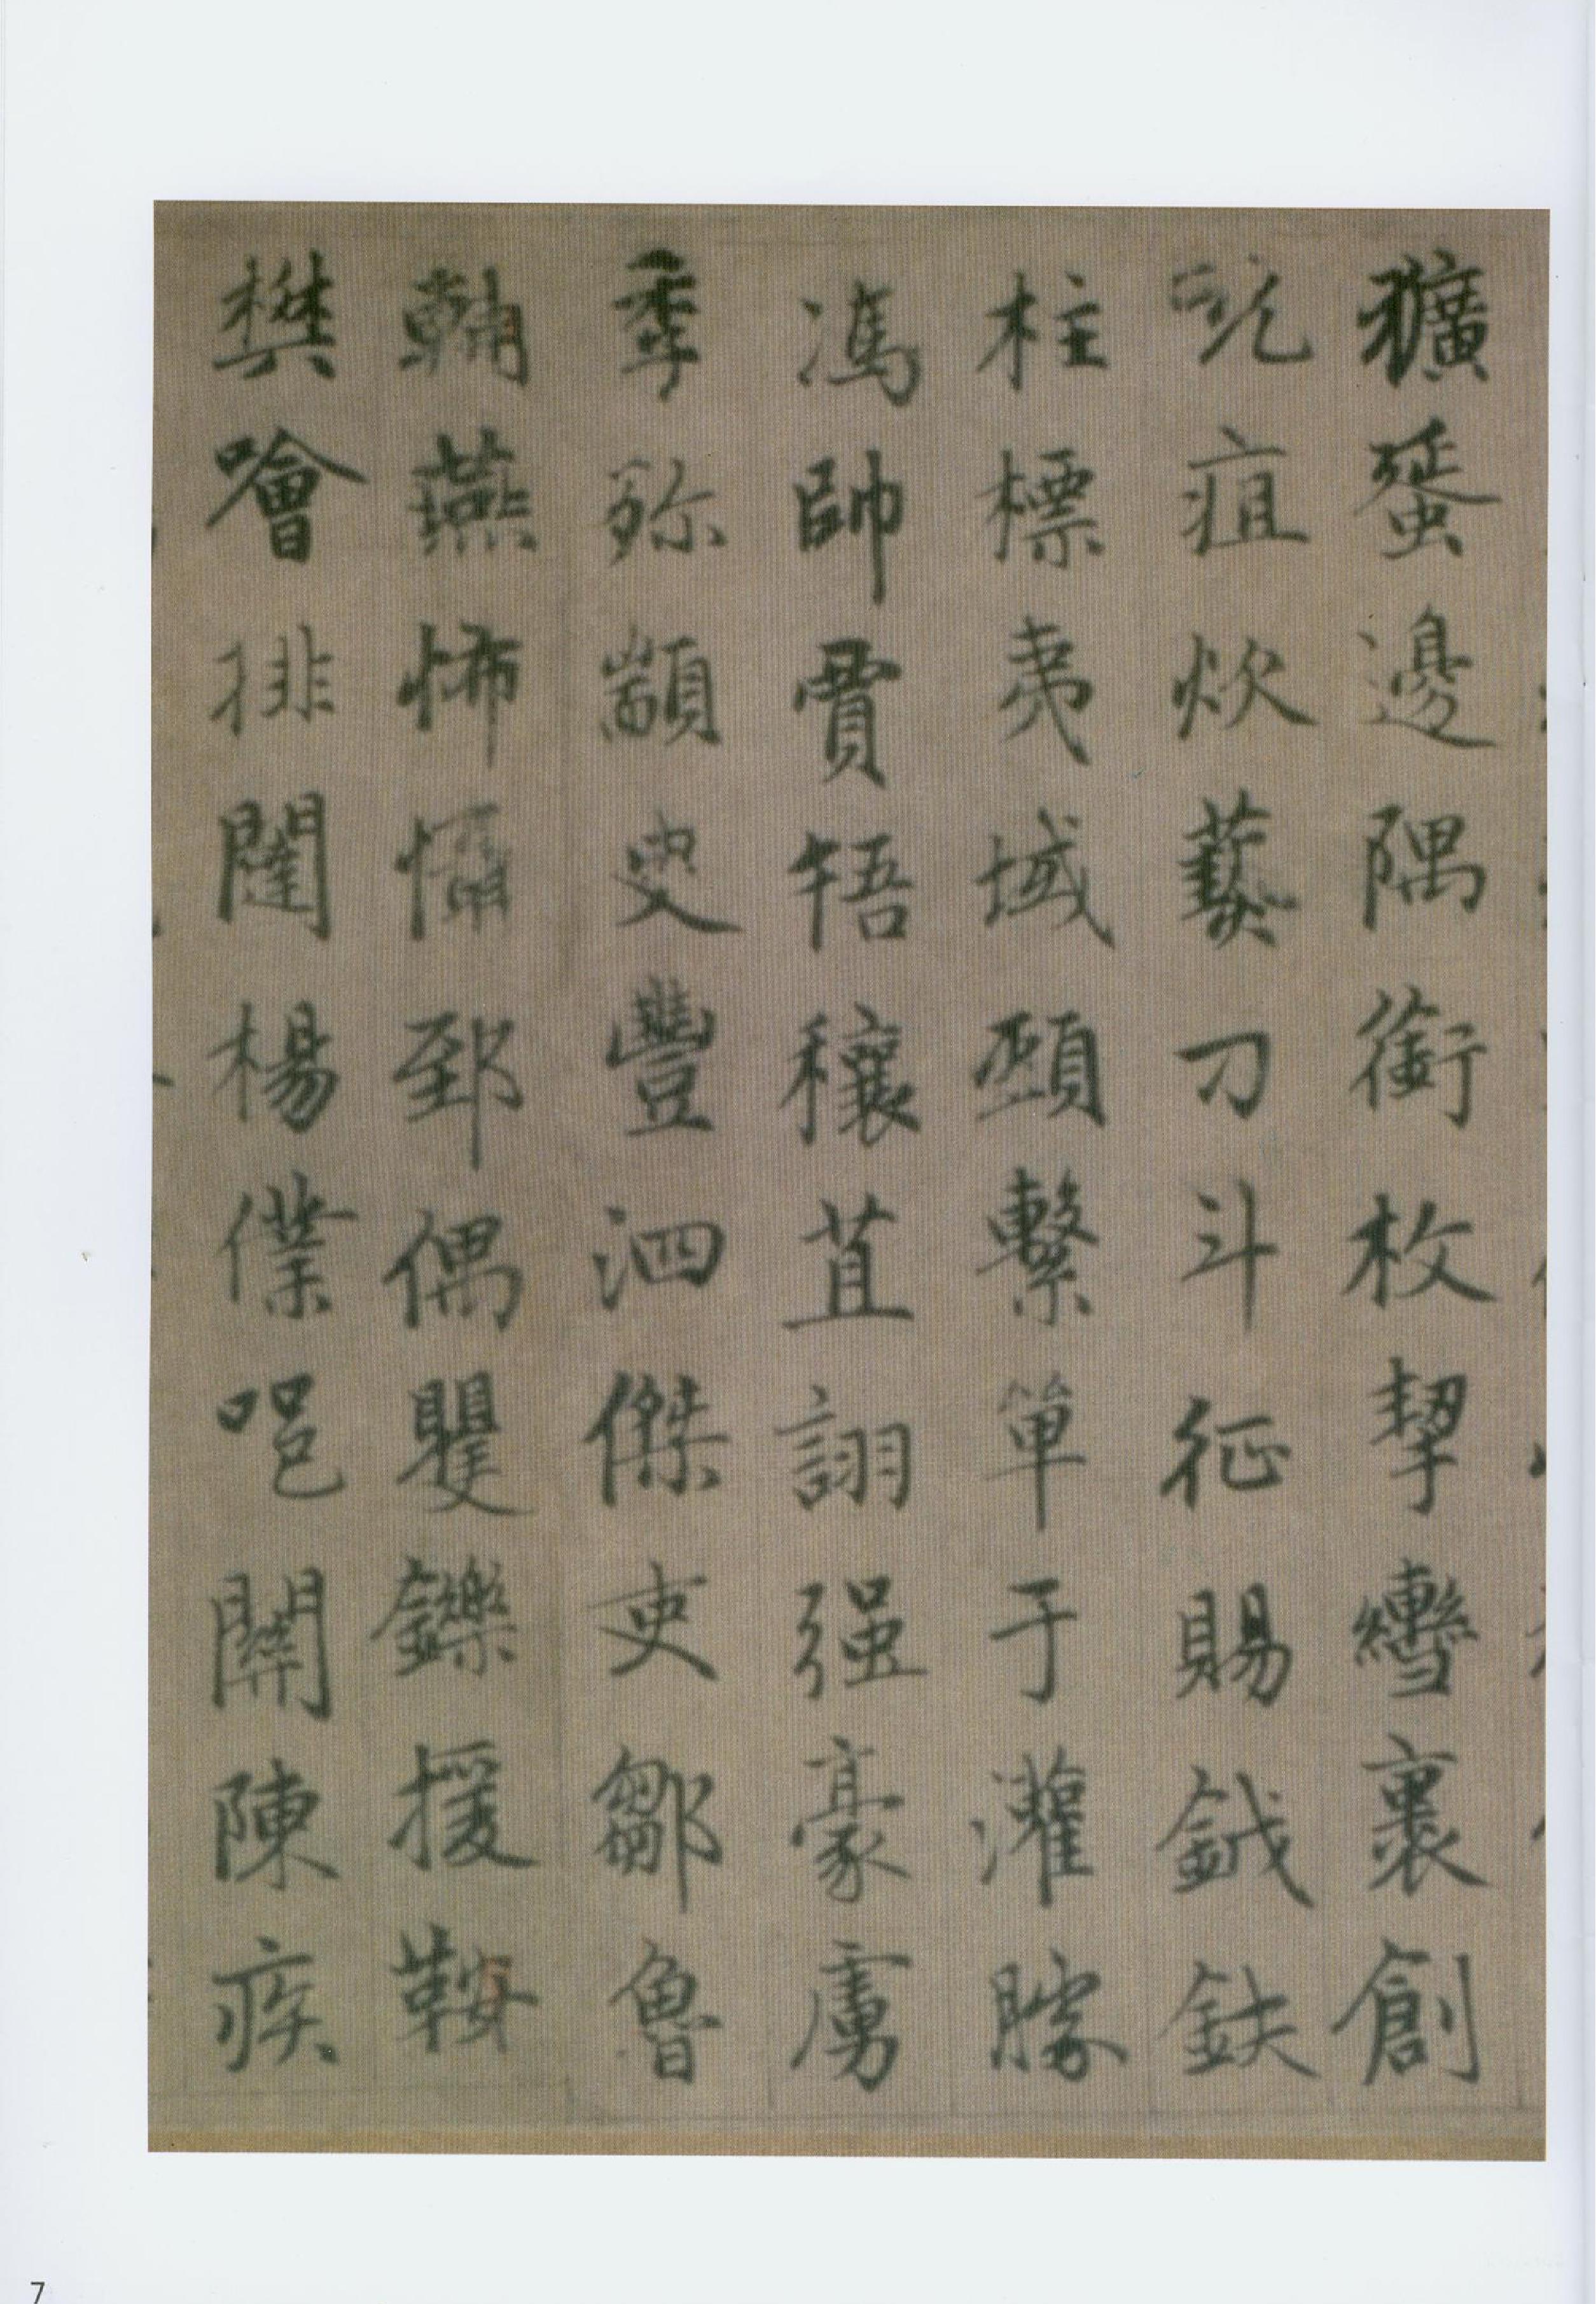 獷蜑邊隅銜枚挈轡裹創
吮疽炊爇刁斗征賜鉞鈇
柱標夷域頸繫單于灌滕
馮帥賈牾穰苴詡强豪虜
季弥顓史豐泗傑吏鄒魯
輔燕怖懾郅偶矍鑠援鞍
樊噲排闥楊僕咫關陳疾
7